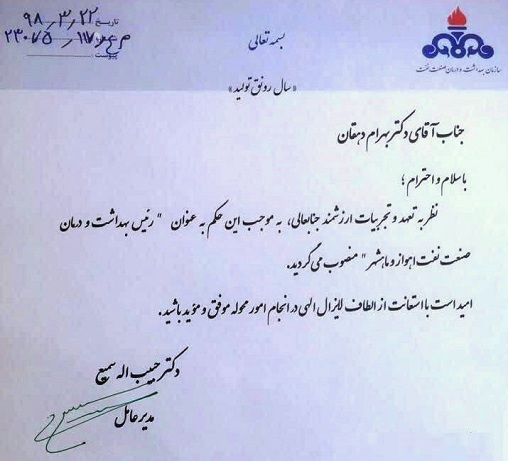 تاریخ ۹۸٫۳٫۲۲
پیوست
بسمه تعالی
سازمان بهداشت و درمان صنعت نفت
«سال رونق تولید»
جناب آقای دکتر بهرام دهقان
باسلام و احترام ؛
نظر به تعهد و تجربیات ارزشمند جنابعالی، به موجب این حکم به عنوان " رئیس بهداشت و درمان
صنعت نفت اهواز و ماهشهر " منصوب می گردید.
امید است با استعانت از الطاف لایزال الهی در انجام امور محوله موفق و مؤید باشید.
دکتر حبیب اله سمیع
مدیر عامل